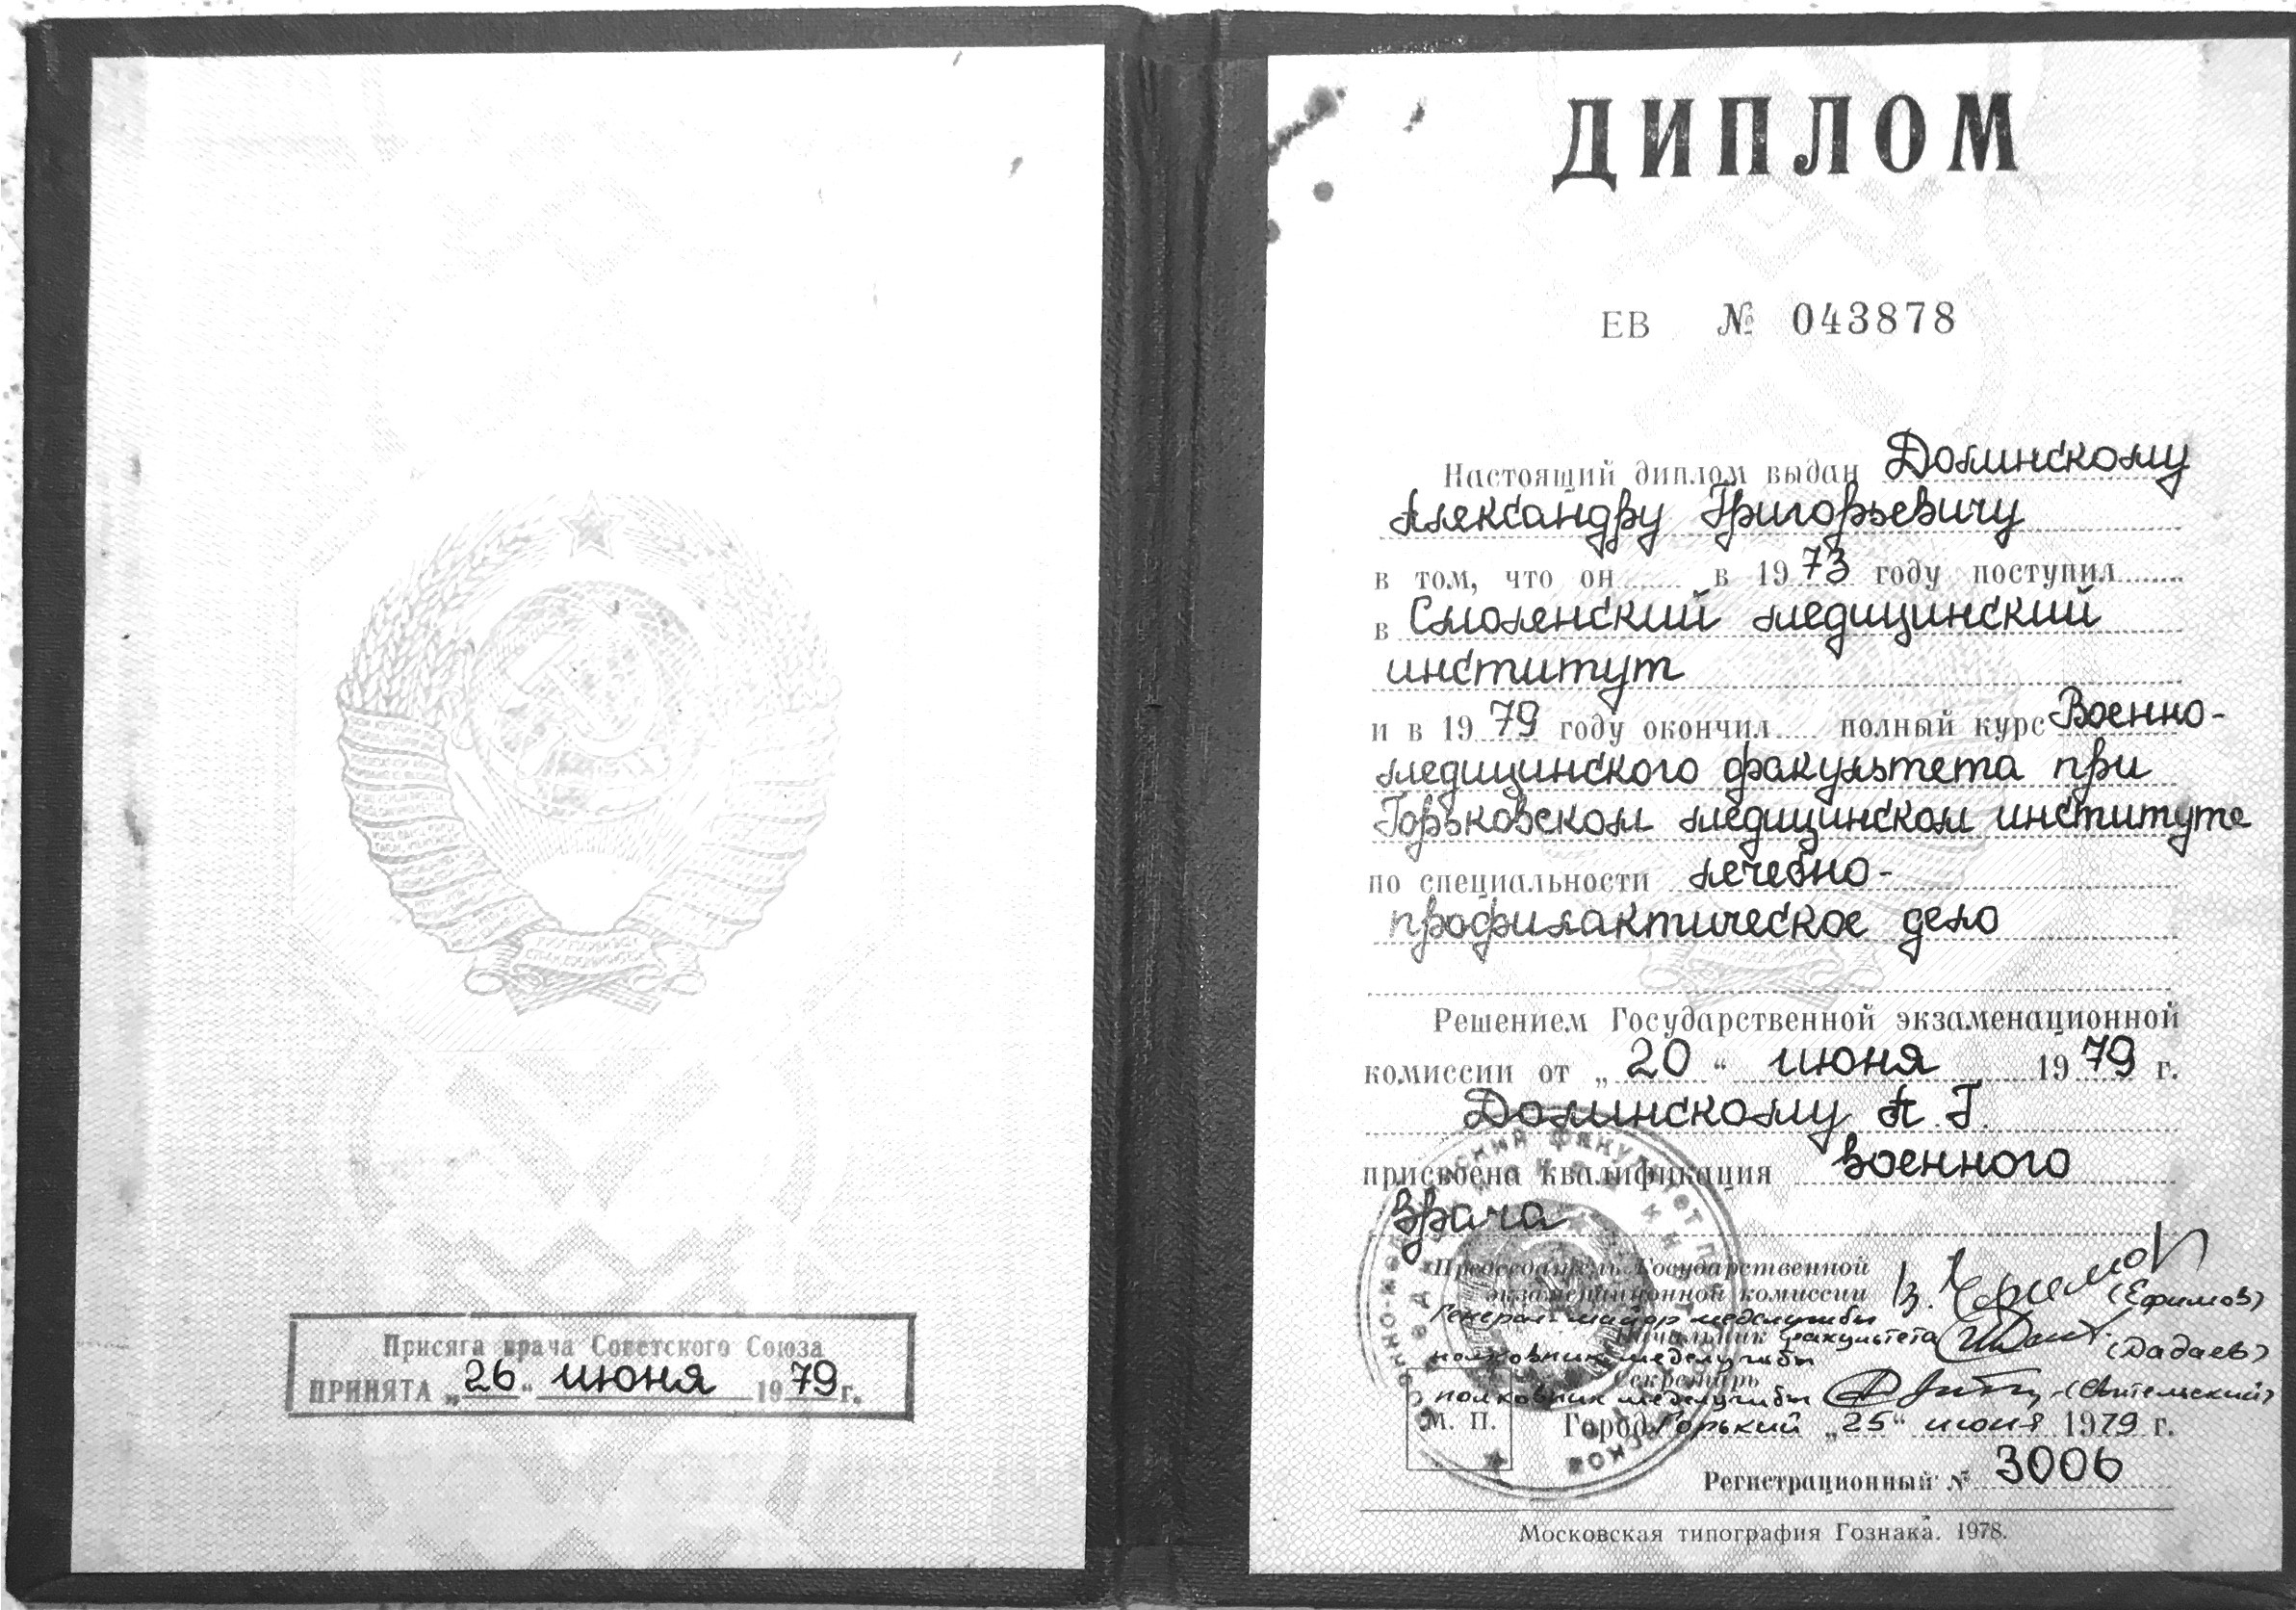 Присяга врача Советского Союза
ПРИНЯТА „26“ июня 1979 г.
ДИПЛОМ
ЕВ № 043878
Настоящий диплом выдан Долинскому
Александру Григорьевичу
в том, что он в 1973 году поступил
в Смоленский медицинский
институт
и в 1979 году окончил полный курс Военно-
медицинского факультета при
Горьковском медицинском институте
по специальности лечебно-
профилактическое дело
Решением Государственной экзаменационной
комиссии от „20“ июня 1979 г.
Долинскому А. Г.
присвоена квалификация военного
врача
Председатель Государственной
экзаменационной комиссии
Генерал-майор медслужбы (Ефимов)
Начальник факультета
полковник медслужбы (Дадаев)
Секретарь
полковник медслужбы
М. П. Город Горький „25“ июня 1979 г.
Регистрационный № 3006
Московская типография Гознака. 1978.